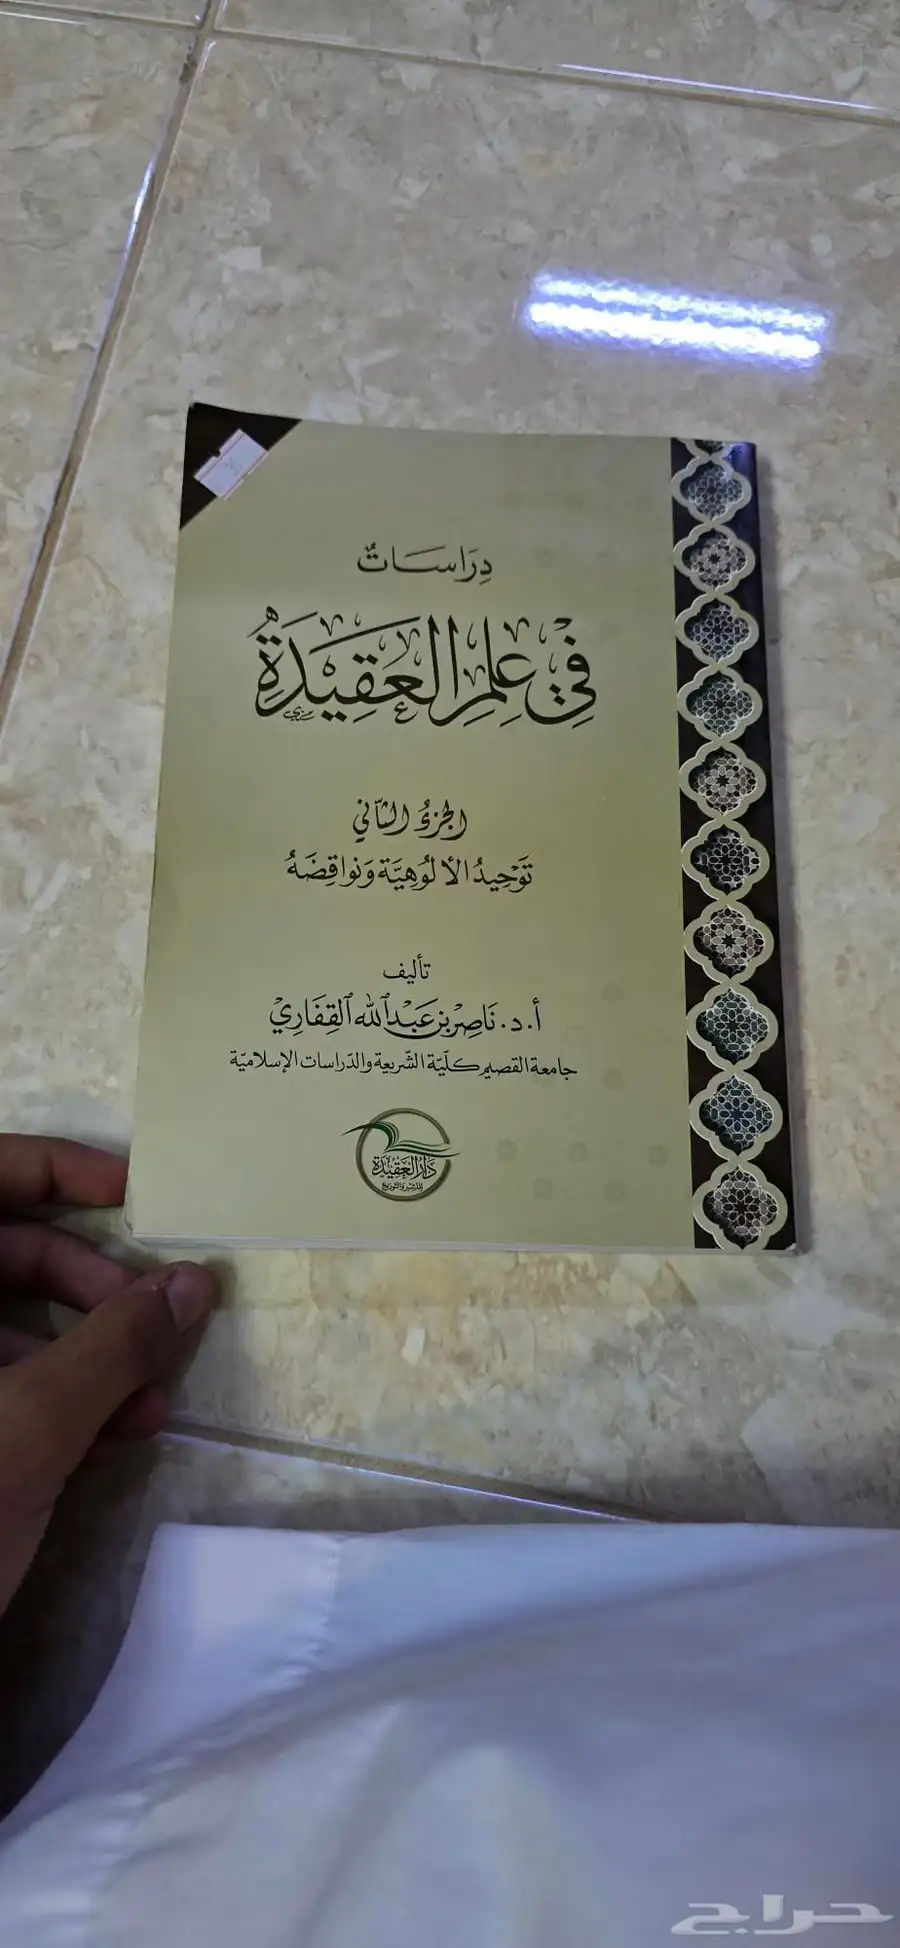 دِرَاسَاتٌ
فِي عِلْمِ العَقِيْدَةِ
الجزءُ الثَّاني
تَوْحِيدُ الألُوهِيَّة وَنَواقِضَهُ
تأليف
أ.د. نَاصِر بْن عَبْدِ اللهِ القِفَارِيّ
جامعة القصيم كليّة الشّريعة والدّراسات الإسلاميّة
دَارُ العَقِيْدَة
للنشر والتوزيع
حراج